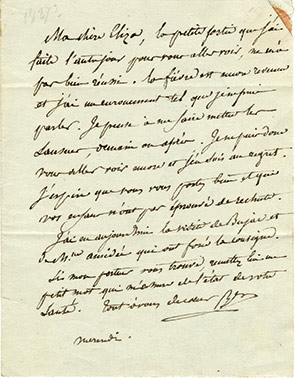 Ma chère Eliza, la petite sortie que j'ai
faite l'autre jour pour vous aller voir, ne m'a
pas bien réussi. la fièvre est encore revenue
et j'ai un enrouement tel que je ne puis
parler. Je pense à me faire mettre les
sansues, demain ou après. Je ne puis donc
vous aller voir encore et j'en suis au regret.
J'espère que vous vous portez bien et que
vos enfans n'ont pas éprouvé de rechute.
J'ai eu aujourd'hui la visite de
et de Mr qui ont forcé la consigne.
Si mon porteur vous trouve, remettez lui un
petit mot qui m'assure de l'état de votre
santé. Tout à vous de cœur
mercredi.